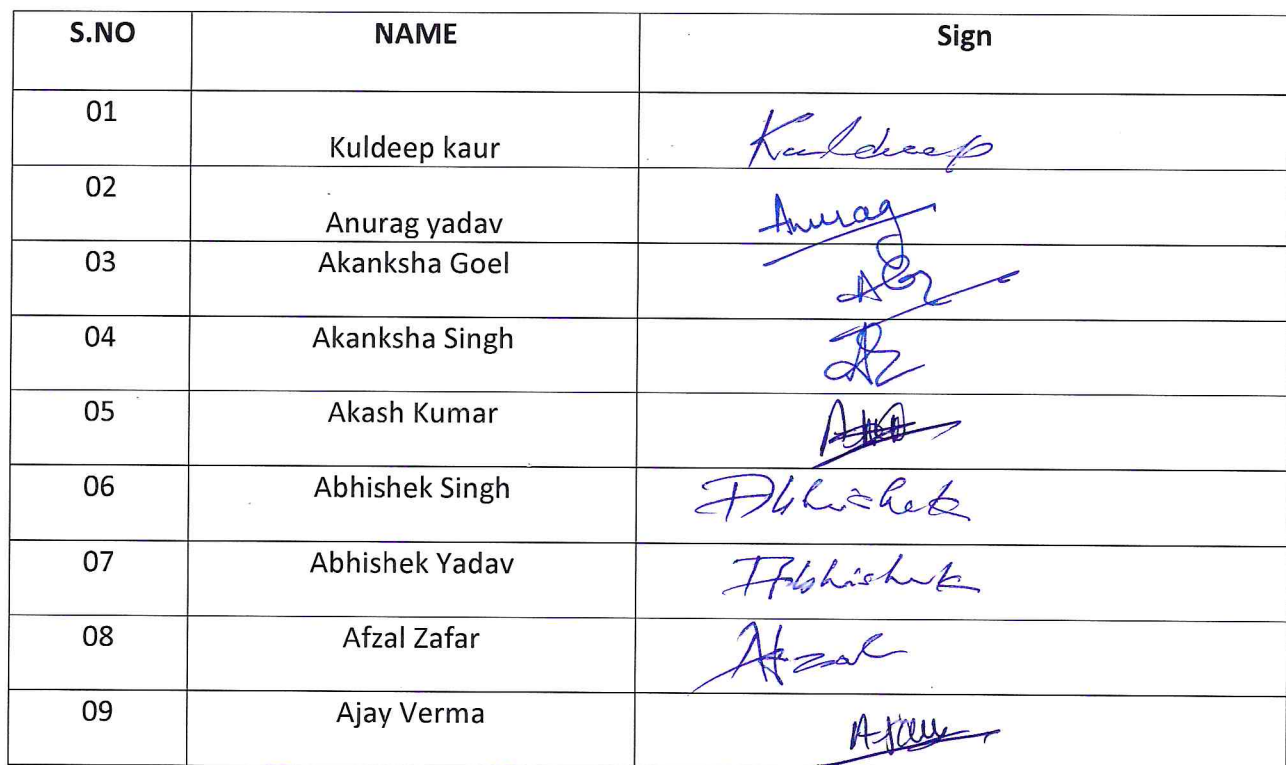 S.NO NAME Sign
01 Kuldeep kaur Kuldeep
02 Anurag yadav Anurag
03 Akanksha Goel
04 Akanksha Singh
05 Akash Kumar
06 Abhishek Singh Abhishek
07 Abhishek Yadav Abhishek
08 Afzal Zafar Afzal
09 Ajay Verma